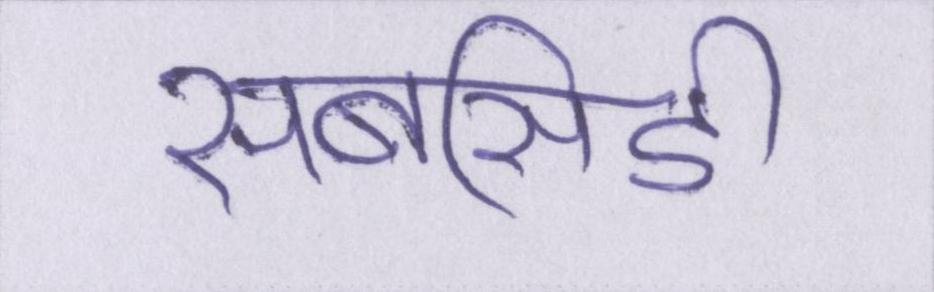 सबसिडी